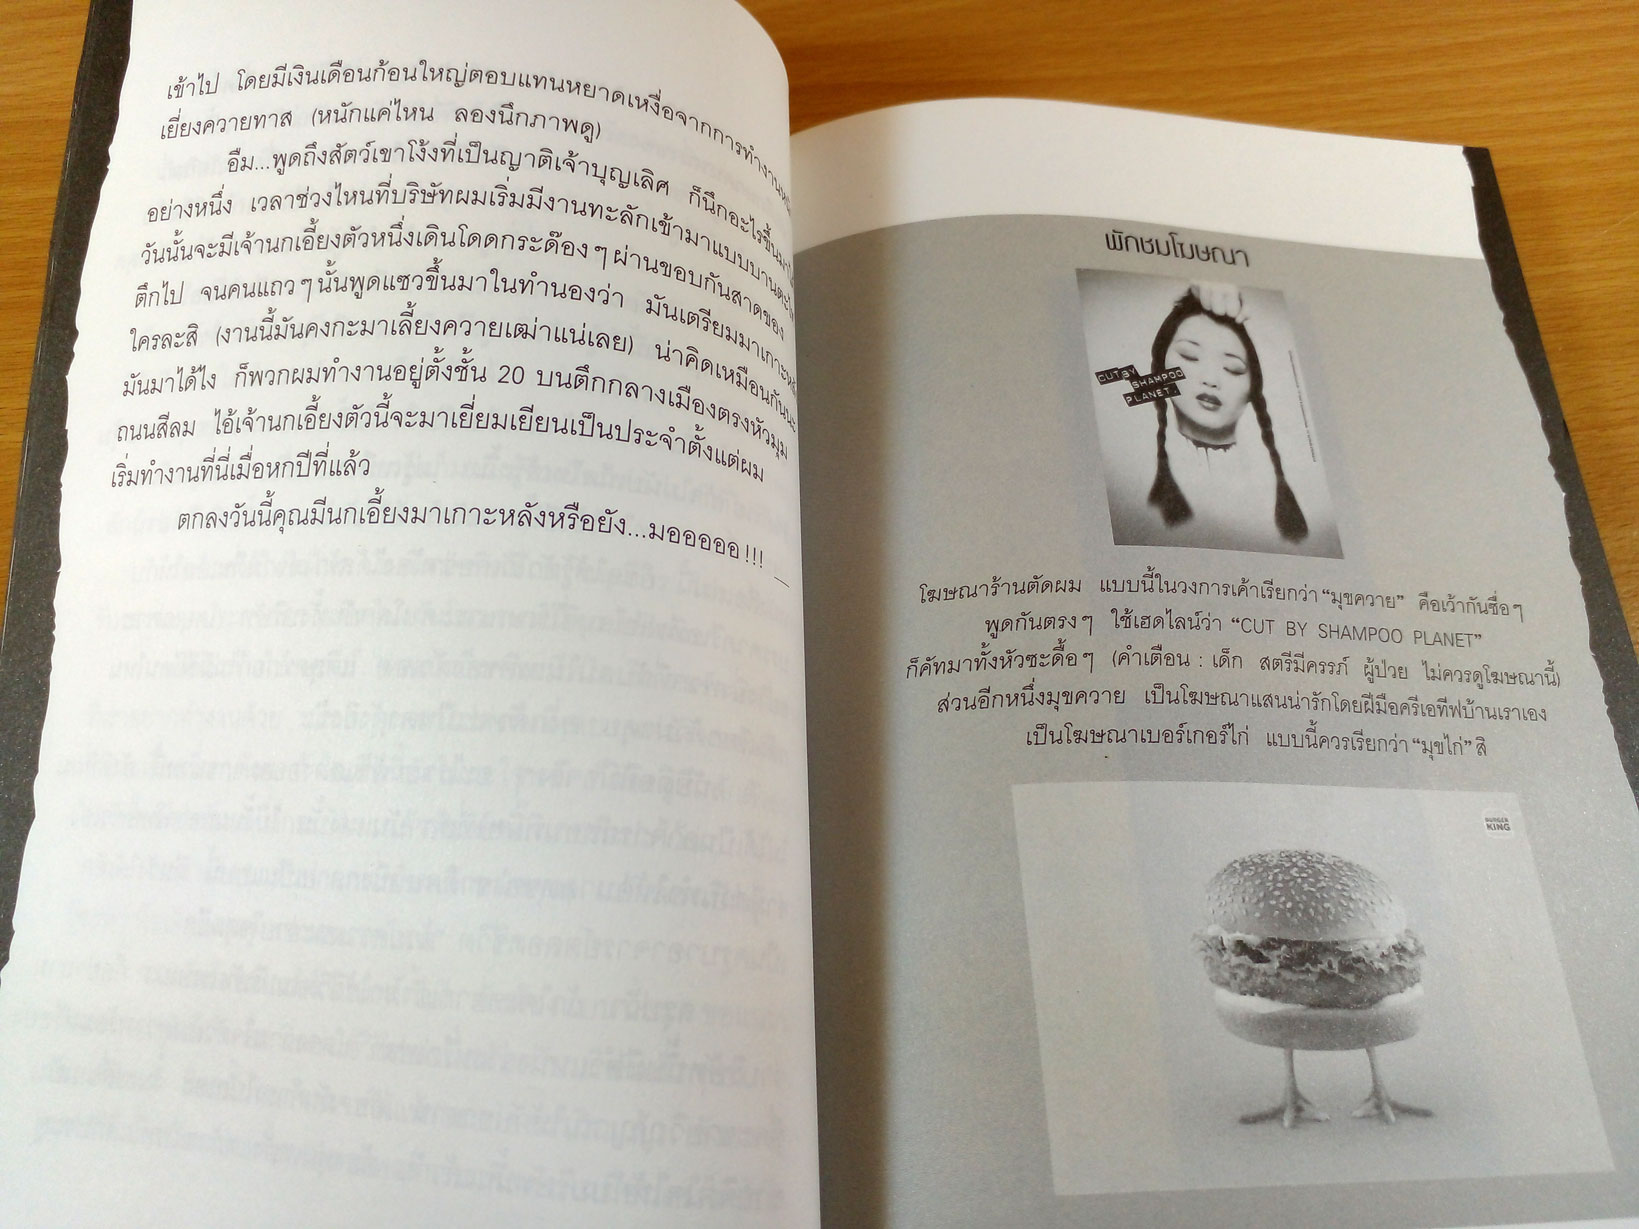 เข้าไป โดยมีเงินเดือนก้อนใหญ่ตอบแทนหยาดเหงื่อจากการทำงาน
เยี่ยงควายทาส (หนักแค่ไหน ลองนึกภาพดู)
อืม...พูดถึงสัตว์เขาโง้งที่เป็นญาติเจ้าบุญเลิศ ก็นึกอะไรขึ้นมา
อย่างหนึ่ง เวลาช่วงไหนที่บริษัทผมเริ่มมีงานทะลักเข้ามาแบบบานตะไท
วันนั้นจะมีเจ้านกเอี้ยงตัวหนึ่งเดินโดดกระด๊องๆ ผ่านขอบกันสาดของ
ตึกไป จนคนแถวๆ นั้นพูดแซวขึ้นมาในทำนองว่า มันเตรียมมาเกาะหลัง
ใครละสิ (งานนี้มันคงกะมาเลี้ยงควายเฒ่าแน่เลย) น่าคิดเหมือนกันนะ
มันมาได้ไง ก็พวกผมทำงานอยู่ตั้งชั้น 20 บนตึกกลางเมืองตรงหัวมุม
ถนนสีลม ไอ้เจ้านกเอี้ยงตัวนี้จะมาเยี่ยมเยียนเป็นประจำตั้งแต่ผม
เริ่มทำงานที่นี่เมื่อหกปีที่แล้ว
ตกลงวันนี้คุณมีนกเอี้ยงมาเกาะหลังหรือยัง...มอออออ !!!
พักชมโฆษณา
CUT BY
SHAMPOO
PLANET.
โฆษณาร้านตัดผม แบบนี้ในวงการเค้าเรียกว่า “มุขควาย” คือเว้ากันซื่อๆ
พูดกันตรงๆ ใช้เฮดไลน์ว่า “CUT BY SHAMPOO PLANET”
ก็คัทมาทั้งหัวซะดื้อๆ (คำเตือน : เด็ก สตรีมีครรภ์ ผู้ป่วย ไม่ควรดูโฆษณานี้)
ส่วนอีกหนึ่งมุขควาย เป็นโฆษณาแสนน่ารักโดยฝีมือครีเอทีฟบ้านเราเอง
เป็นโฆษณาเบอร์เกอร์ไก่ แบบนี้ควรเรียกว่า “มุขไก่” สิ
BURGER
KING